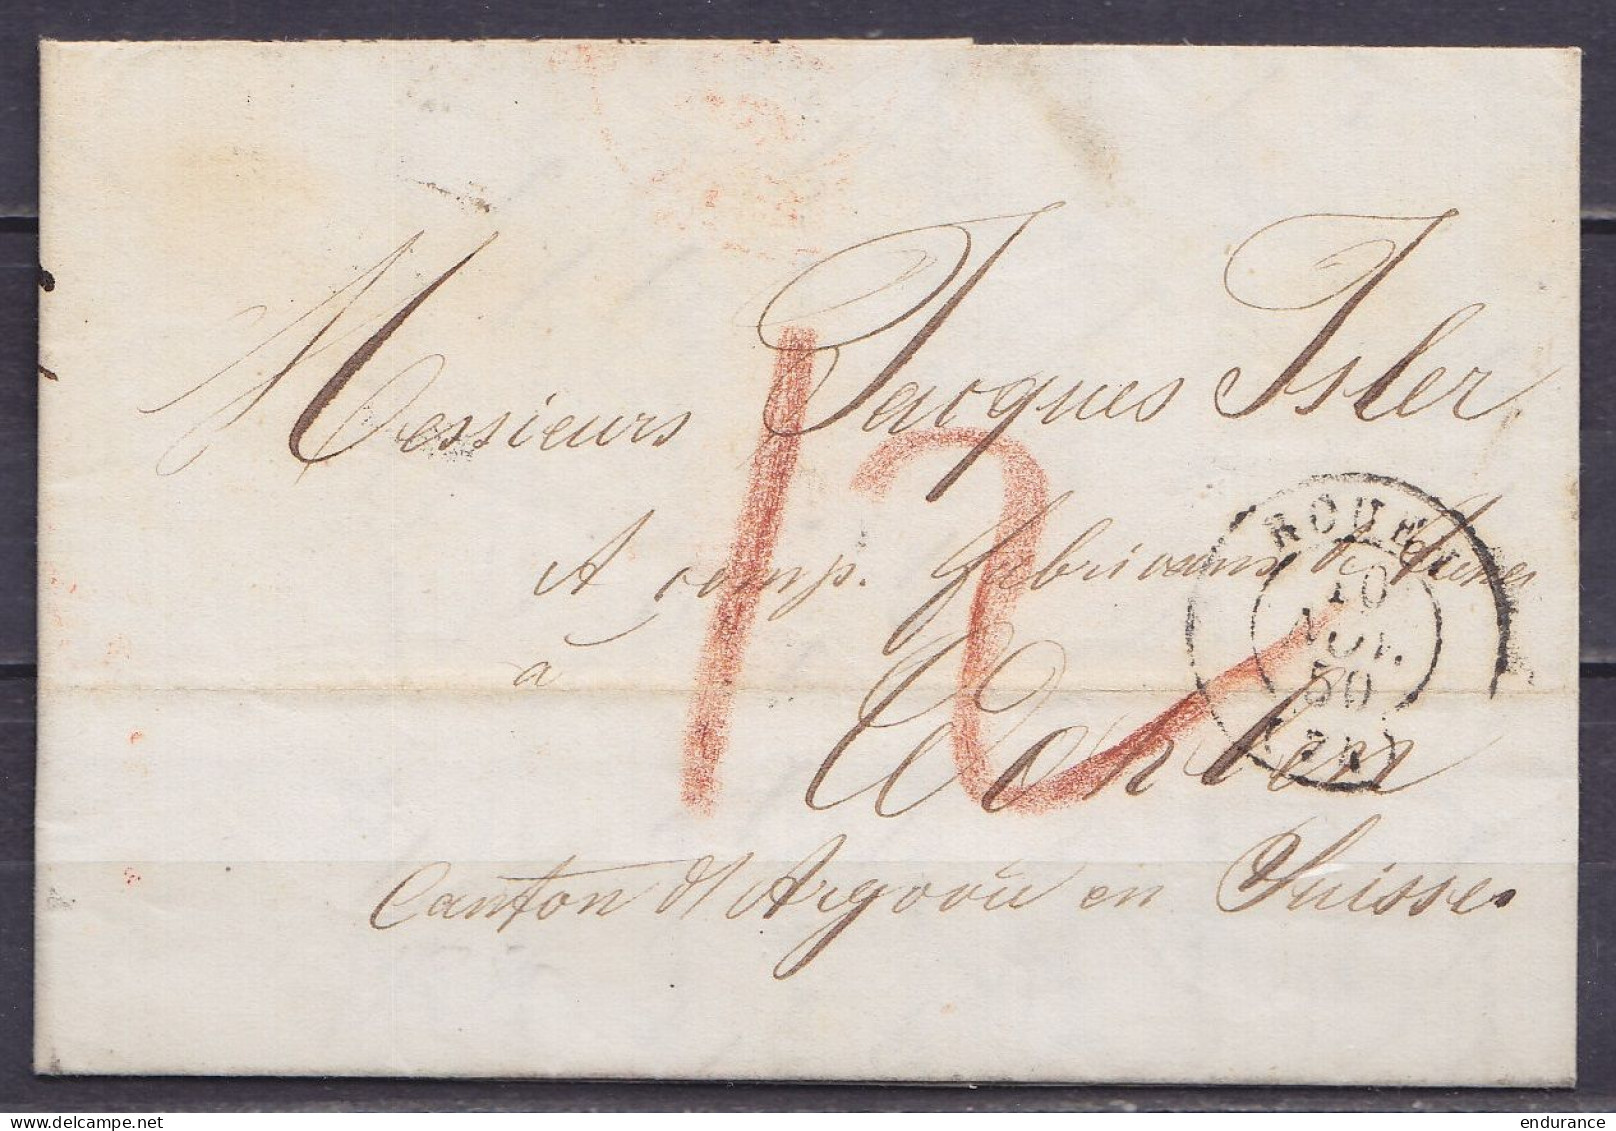 Messieurs Jacques Isler
& comp. fabricans de
à Wohlen
Canton d'Argovie en Suisse.
12
ROUEN
10
NOV.
50
(74)
delcampe.net
endurance